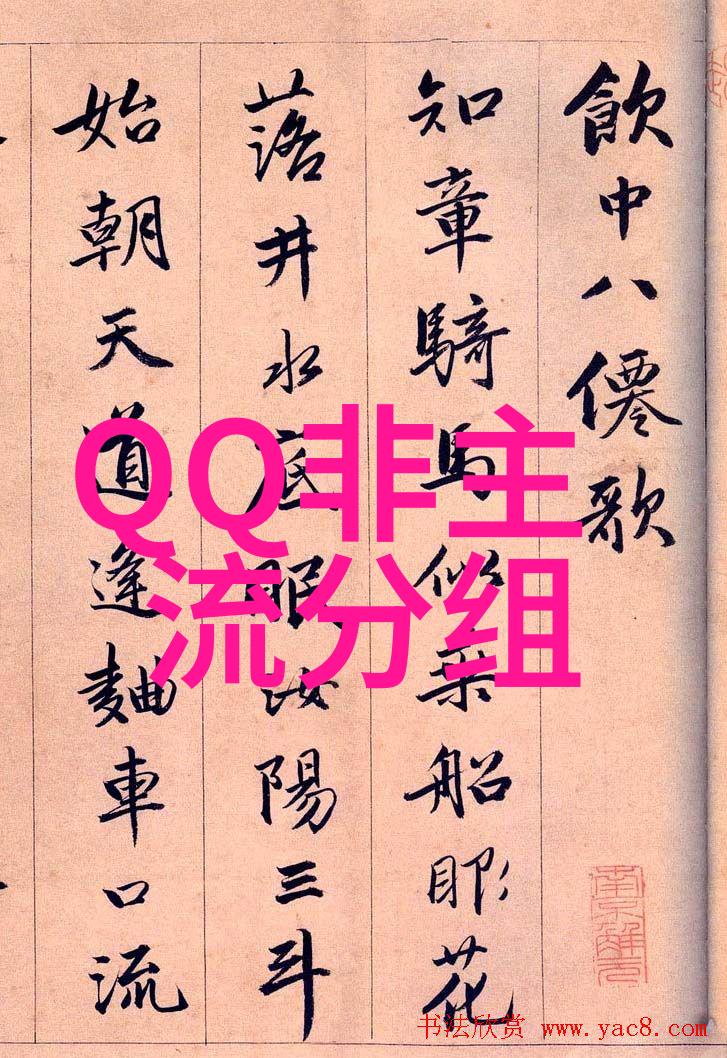 飲中八僊歌
知章騎馬似乘船眼花
落井水底眠汝陽三斗
始朝天道逢麯車口流
QQ非主
流分组
南京解元
书法欣赏 www.yac8.com